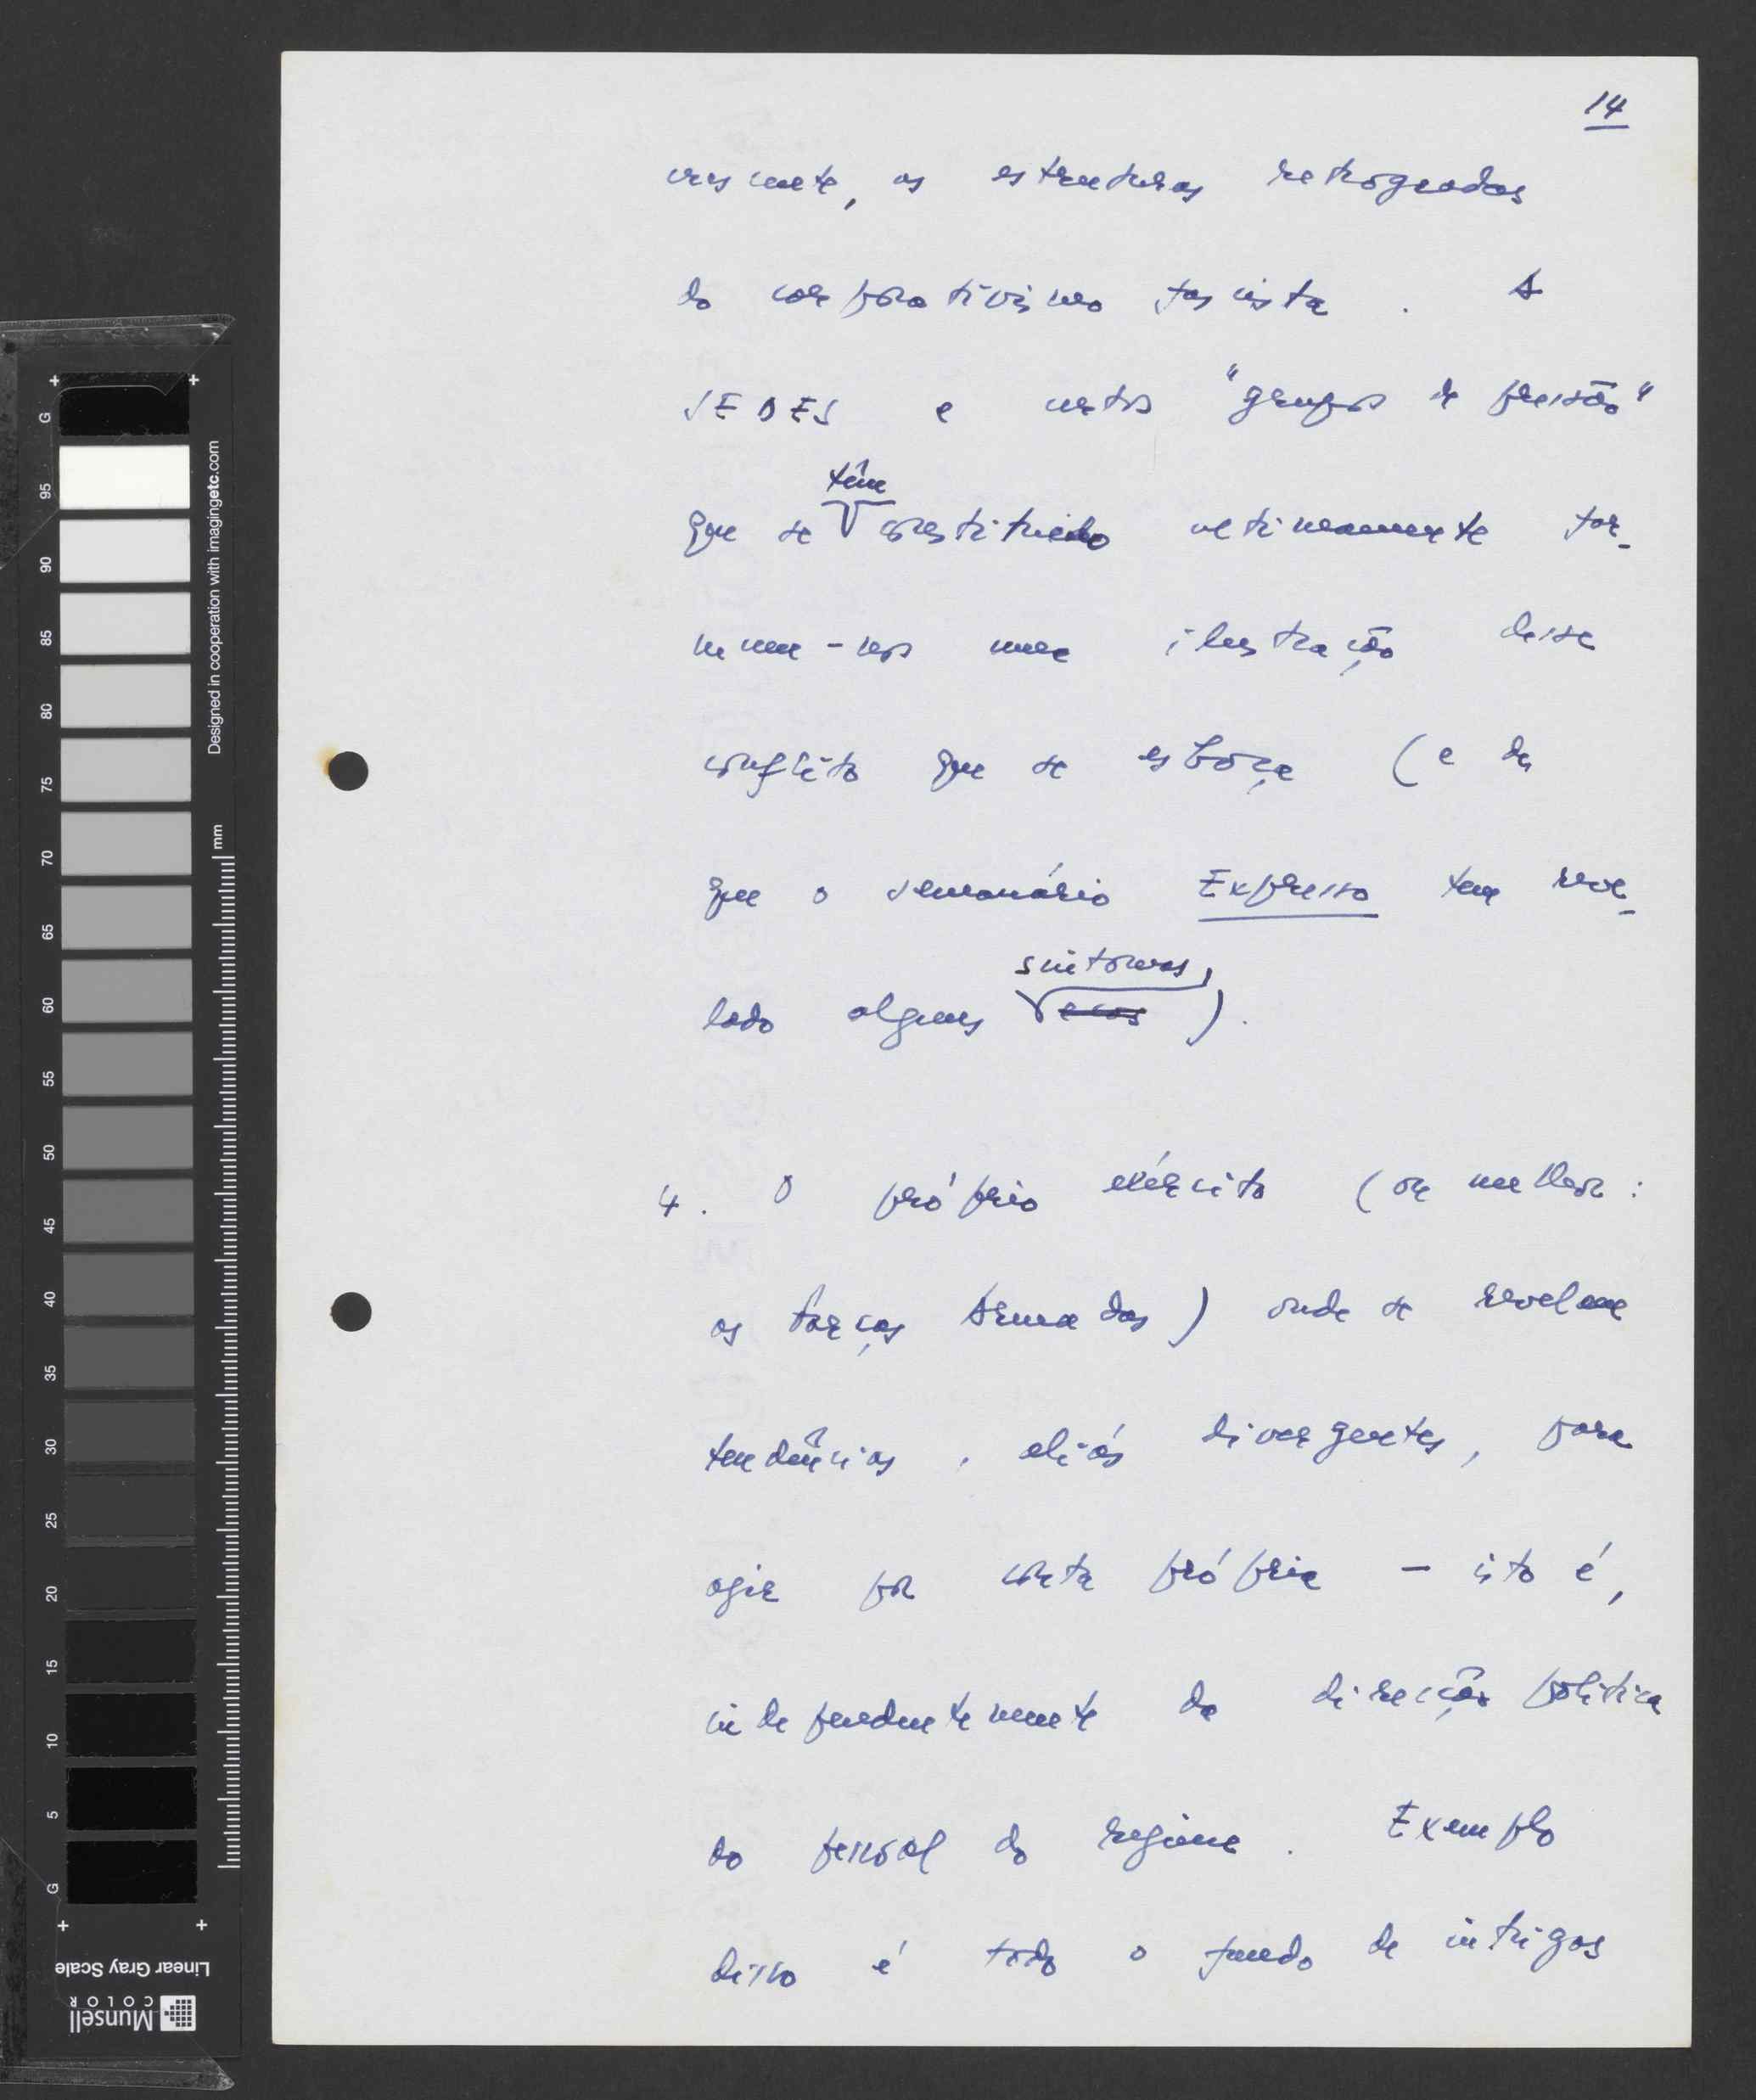 14
mesmente, as estruturas retrogradas
do corporativismo fascista. A
SEDES e certos "grupos de pressão"
que se têm constituido ultimamente for-
mam-nos uma ilustração desse
conflito que se esboça (e de
que o semanário Expresso tem reve-
lado alguns sintomas, ecos).
4. O próprio exército (ou melhor:
as Forças Armadas) onde se revelam
tendências, aliás divergentes, para
agir por conta própria – isto é,
independentemente da direcção politica
do pessoal do regime. Exemplo
disso é todo o fundo de intrigas
G
95
90
85
80
75
70
65
60
55
50
45
40
35
30
25
20
15
10
5
G
mm
Designed in cooperation with imagingetc.com
Linear Gray Scale
Munsell
COLOR